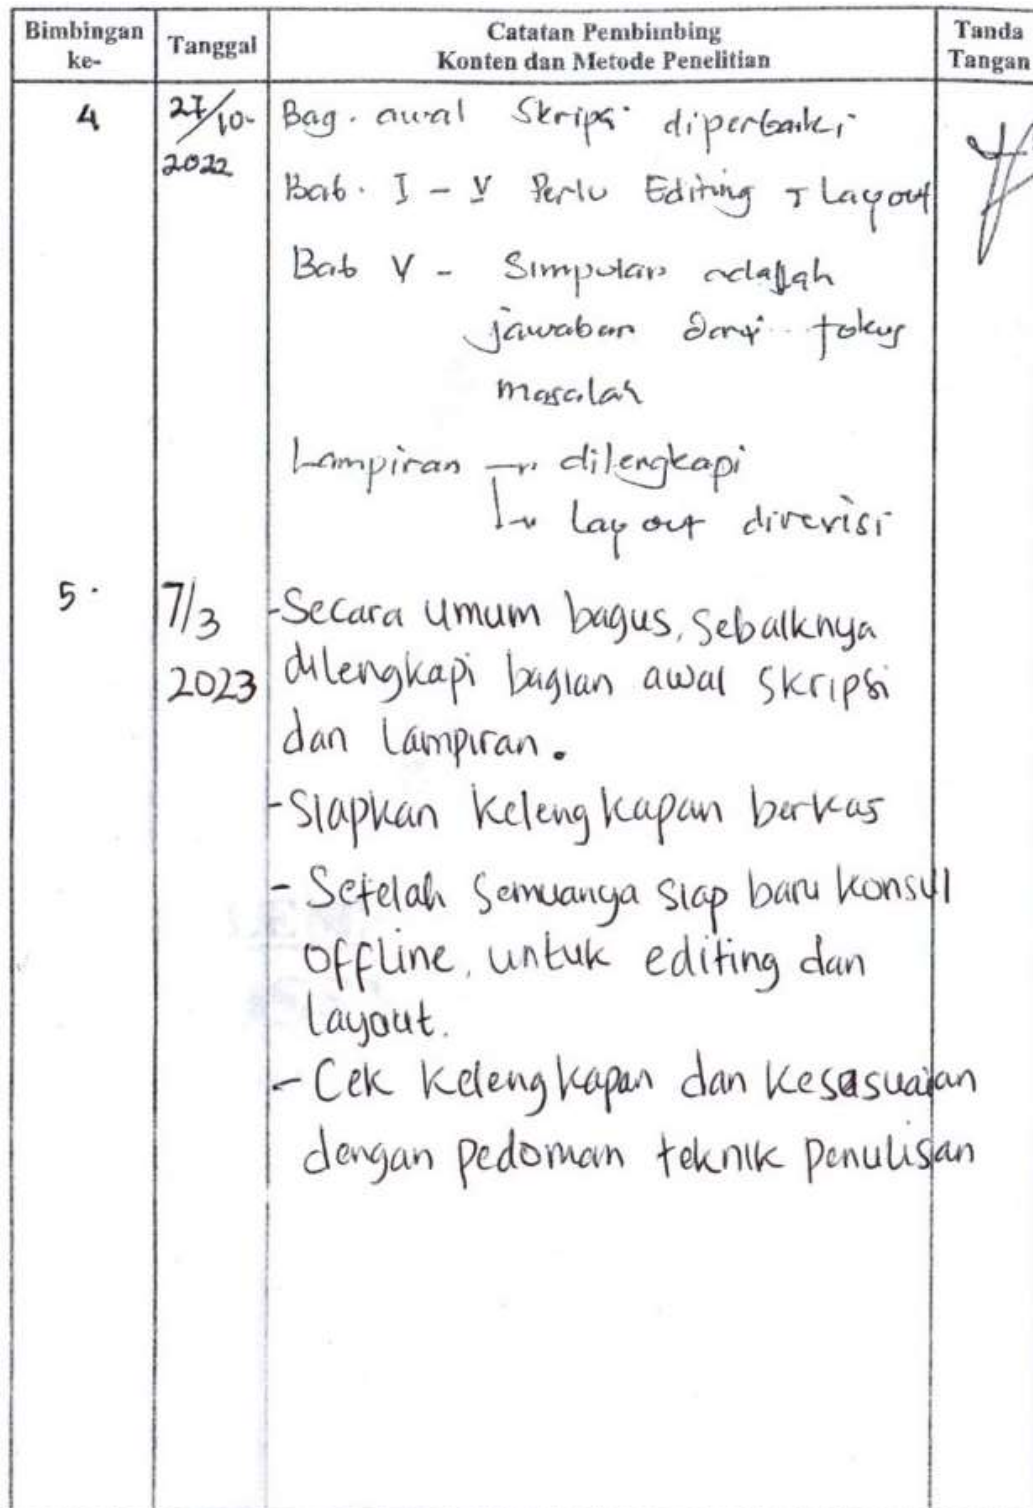 Bimbingan ke- Tanggal Catatan Pembimbing Konten dan Metode Penelitian Tanda Tangan
4 27/10- 2022 Bag. awal Skripsi diperbaiki
Bab. I - V Perlu Editing + Layout
Bab V - Simpulan adalah
jawaban dari fokus
masalah
Lampiran → dilengkapi
↳ Lay out direvisi
5. 7/3 2023 - Secara umum bagus, sebaiknya
dilengkapi bagian awal skripsi
dan Lampiran.
- Siapkan kelengkapan berkas
- Setelah semuanya siap baru konsul
offline, untuk editing dan
layout.
- Cek kelengkapan dan kesesuaian
dengan pedoman teknik penulisan